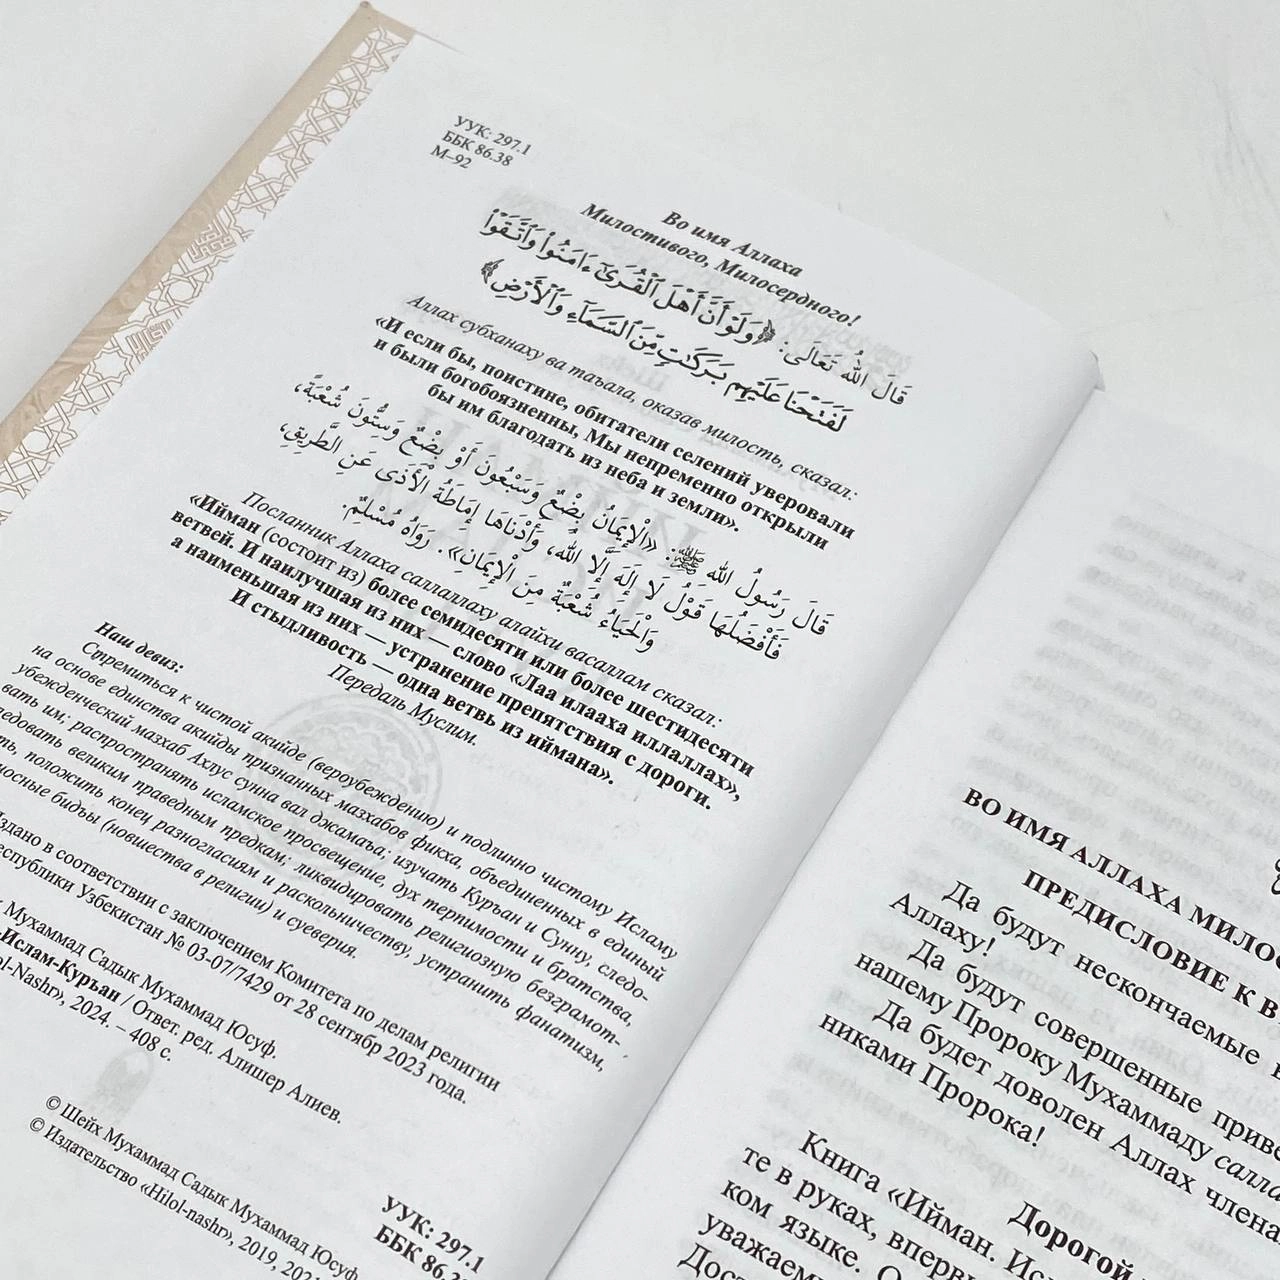 УУК: 297.1
ББК 86.38
М–92
Во имя Аллаха
Милостивого, Милосердного!
قَالَ اللهُ تَعَالَى: ﴿وَلَوْ أَنَّ أَهْلَ ٱلْقُرَىٰٓ ءَامَنُواْ وَٱتَّقَوْاْ
لَفَتَحْنَا عَلَيْهِم بَرَكَٰتٍ مِّنَ ٱلسَّمَآءِ وَٱلْأَرْضِ﴾
Аллах субханаху ва таъала, оказав милость, сказал:
«И если бы, поистине, обитатели селений уверовали
и были богобоязненны, Мы непременно открыли
бы им благодать из неба и земли».
قَالَ رَسُولُ اللهِ ﷺ: «الْإِيمَانُ بِضْعٌ وَسَبْعُونَ أَوْ بِضْعٌ وَسِتُّونَ شُعْبَةً،
فَأَفْضَلُهَا قَوْلُ لَا إِلَهَ إِلَّا اللهُ، وَأَدْنَاهَا إِمَاطَةُ الْأَذَى عَنِ الطَّرِيقِ،
وَالْحَيَاءُ شُعْبَةٌ مِنَ الْإِيمَانِ». رَوَاهُ مُسْلِمٌ.
Посланник Аллаха саллаллаху алайхи васаллам сказал:
«Ийман (состоит из) более семидесяти или более шестидесяти
ветвей. И наилучшая из них — слово «Лаа илааха иллаллах»,
а наименьшая из них — устранение препятствия с дороги.
И стыдливость — одна ветвь из иймана».
Передаль Муслим.
Наш девиз:
Стремиться к чистой акийде (вероубеждению) и подлинно чистому Исламу
на основе единства акийды признанных мазхабов фикха, объединенных в единый
убежденческий мазхаб Ахлус сунна вал джамаъа; изучать Куръан и Сунну, следо-
вать им; распространять исламское просвещение, дух терпимости и братства,
ледовать великим праведным предкам; ликвидировать религиозную безграмот-
ть, положить конец разногласиям и раскольничеству, устранить фанатизм,
носные бидъы (новшества в религии) и суеверия.
Издано в соответствии с заключением Комитета по делам религии
еспублики Узбекистан № 03-07/7429 от 28 сентябр 2023 года.
Мухаммад Садык Мухаммад Юсуф.
-Ислам-Куръан / Ответ. ред. Алишер Алиев.
ol-Nashr», 2024. – 408 с.
УУК: 297.1
© Шейх Мухаммад Садык Мухаммад Юсуф
© Издательство «Hilol-nashr», 2019, 202
ВО ИМЯ АЛЛАХА МИЛОС
ПРЕДИСЛОВИЕ К В
Да будут нескончаемые
Аллаху!
Да будут совершенные приве
нашему Пророку Мухаммаду салла
Да будет доволен Аллах члена
никами Пророка!
Дорогой
Книга «Ийман. Ис
те в руках, впервы
ком языке. О
уважаем
Дост